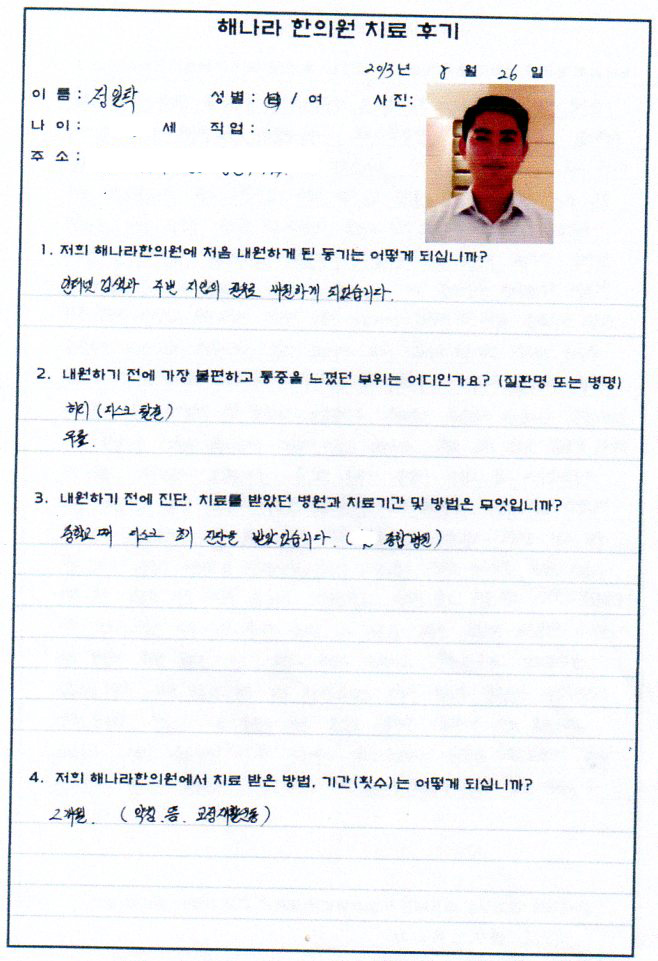 해나라 한의원 치료 후기
2013년 8 월 26 일
이 름 : 정원탁 성별 : 남 / 여 사 진:
나 이 : 세 직업 :
주 소 :
1. 저희 해나라한의원에 처음 내원하게 된 동기는 어떻게 되십니까?
인터넷 검색과 주변 지인의 권유로 내원하게 되었습니다.
2. 내원하기 전에 가장 불편하고 통증을 느꼈던 부위는 어디인가요? (질환명 또는 병명)
허리 (디스크 탈출)
무릎.
3. 내원하기 전에 진단, 치료를 받았던 병원과 치료기간 및 방법은 무엇입니까?
중학교 때 디스크 초기 진단을 받았었습니다. ( 종합병원)
4. 저희 해나라한의원에서 치료 받은 방법, 기간(횟수)는 어떻게 되십니까?
2개월. (약침. 뜸. 교정재활운동)